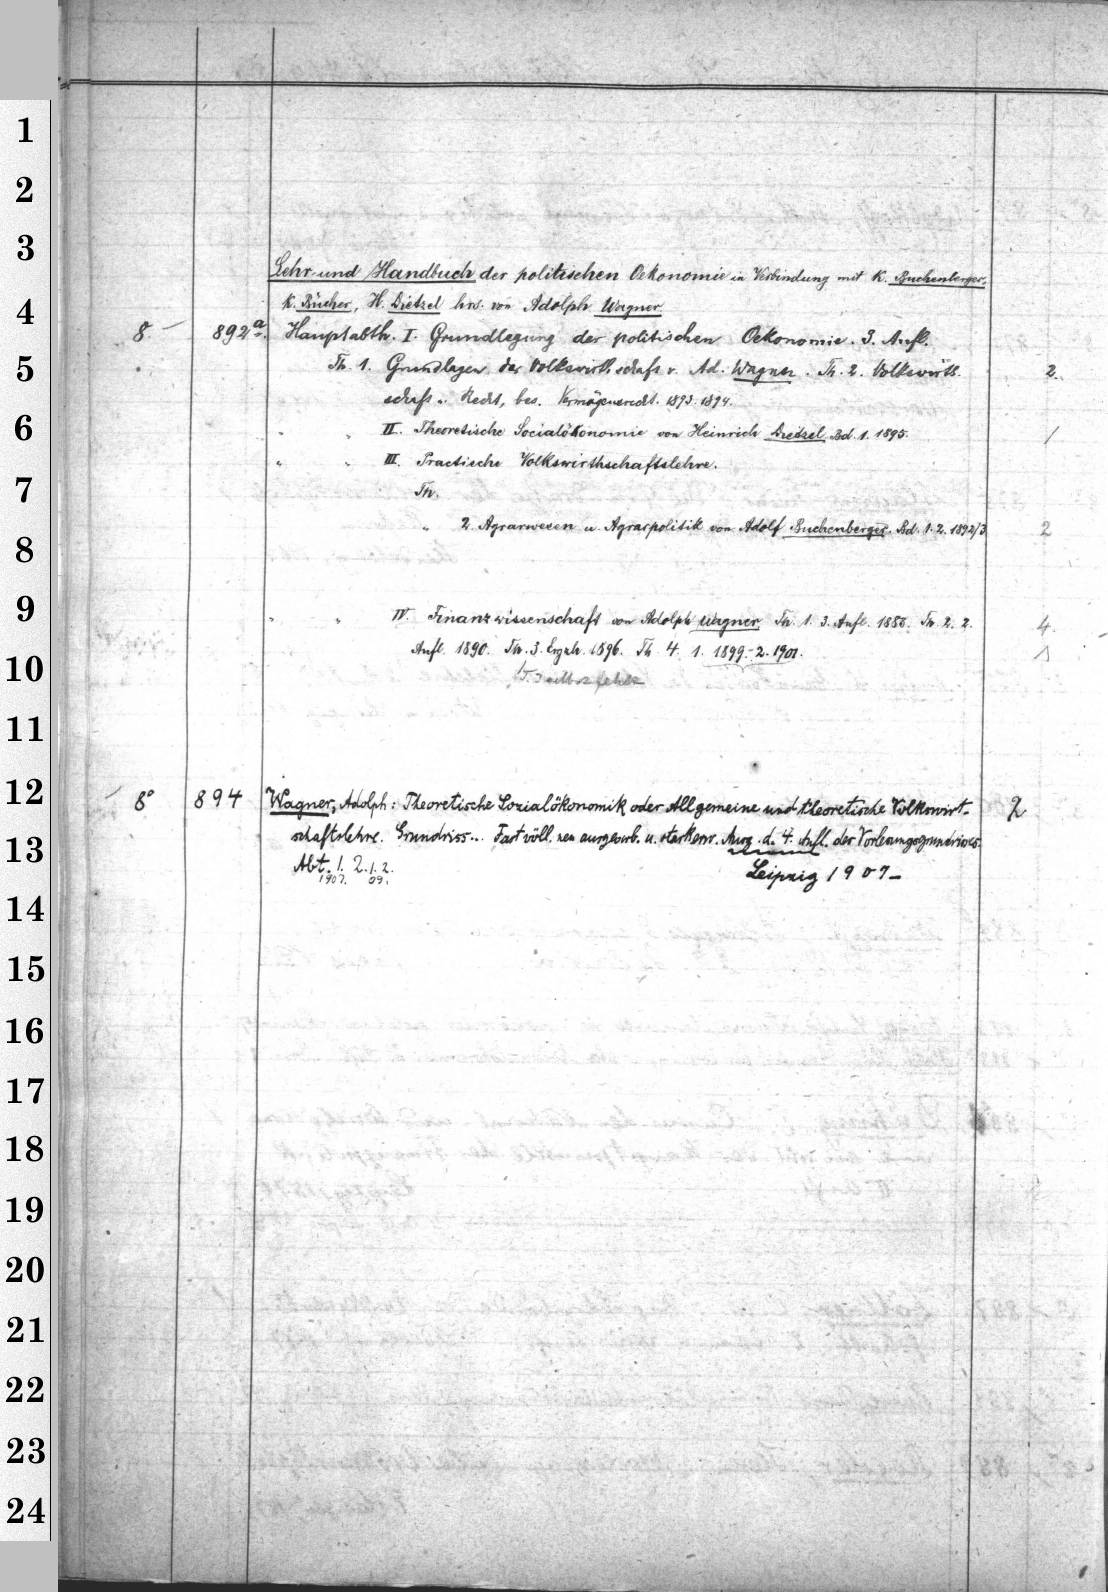 1
2
3
Lehr- und Handbuch der politischen Oekonomie in Verbindung mit K. Buchenberger,
4
K. Bücher, H. Dietzel hrs. von Adolph Wagner
8 892a. Hauptabth. I. Grundlegung der politischen Oekonomie. 3. Aufl.
5
Th. 1. Grundlagen der Volkswirthschaft v. Ad. Wagner. Th. 2. Volkswirth 2.
schaft u. Recht, bes. Vermögensrecht. 1893. 1894.
6
" " II. Theoretische Socialökonomie von Heinrich Dietzel Bd. 1. 1895. 1
" " III. Practische Volkswirthschaftslehre.
7
Th.
" 2. Agrarwesen u. Agrarpolitik von Adolf Buchenberger. Bd. 1. 2. 1892/3 2
8
9
" " IV. Finanzwissenschaft von Adolph Wagner Th. 1. 3. Aufl. 1883. Th. 2. 2. 4.
Aufl. 1890. Th. 3. Ergzh. 1896. Th. 4. 1. 1899.-2. 1901. 1
10
fehlt
11
12
8° 894 Wagner, Adolph: Theoretische Sozialökonomik oder Allgemeine und theoretische Volkswirt- 2
13
schaftslehre. Grundriss... Fast völl. neu ausgearb. u. starkerw. Ausg. d. 4. Aufl. der Vorlesungsgrundrisses
Abt. 1. 2. 1. 2. Leipzig 1907-
1907. 09.
14
15
16
17
18
19
20
21
22
23
24